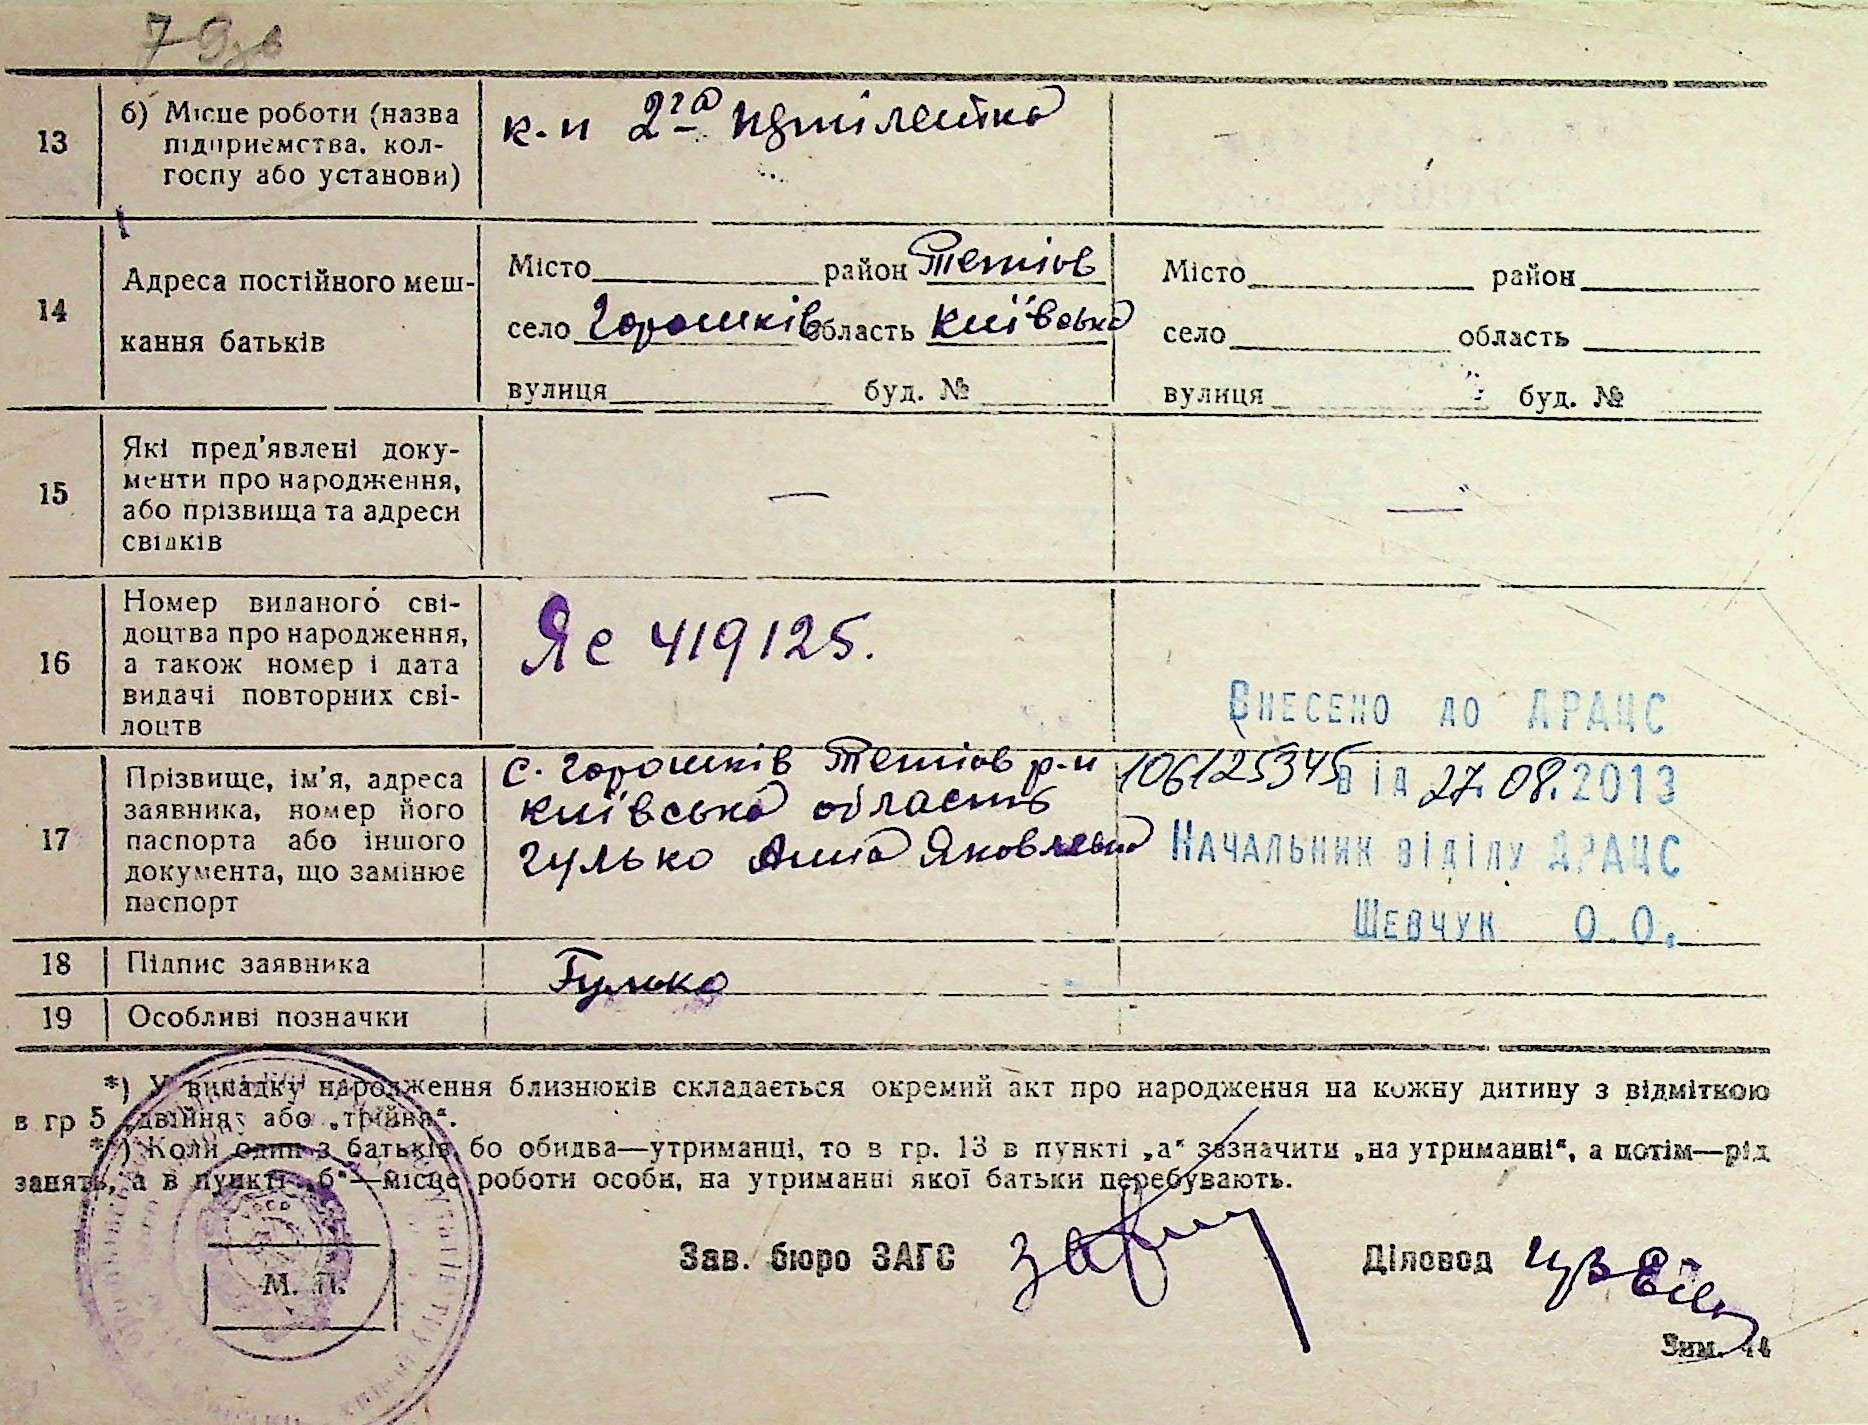 79зв
13
б) Місце роботи (назва
підприємства, кол-
госпу або установи)
к-п 2га пятілетка
14
Адреса постійного меш-
кання батьків
Місто район Тетіїв
село Горошків область Київська
вулиця буд. №
Місто район
село область
вулиця буд. №
15
Які пред'явлені доку-
менти про народження,
або прізвища та адреси
свідків
—
—
16
Номер виданого сві-
доцтва про народження,
а також номер і дата
видачі повторних сві-
доцтв
Яс 419125.
Внесено до ДРАЦС
106125345 від 27.08.2013
Начальник відділу ДРАЦС
Шевчук О.О.
17
Прізвище, ім'я, адреса
заявника, номер його
паспорта або іншого
документа, що замінює
паспорт
с. Горошків Тетіїв р-н
Київська область
Гулько Анна Яковлевна
18
Підпис заявника
Гулько
19
Особливі позначки
*) У випадку народження близнюків складається окремий акт про народження на кожну дитину з відміткою
в гр 5 „двійня" або „трійня".
**) Коли один з батьків або обидва—утриманці, то в гр. 13 в пункті „а" зазначити „на утриманні", а потім—рід
занять, а в пункті „б"—місце роботи особи, на утриманні якої батьки перебувають.
М. П.
Зав. бюро ЗАГС
Діловод
Зим.